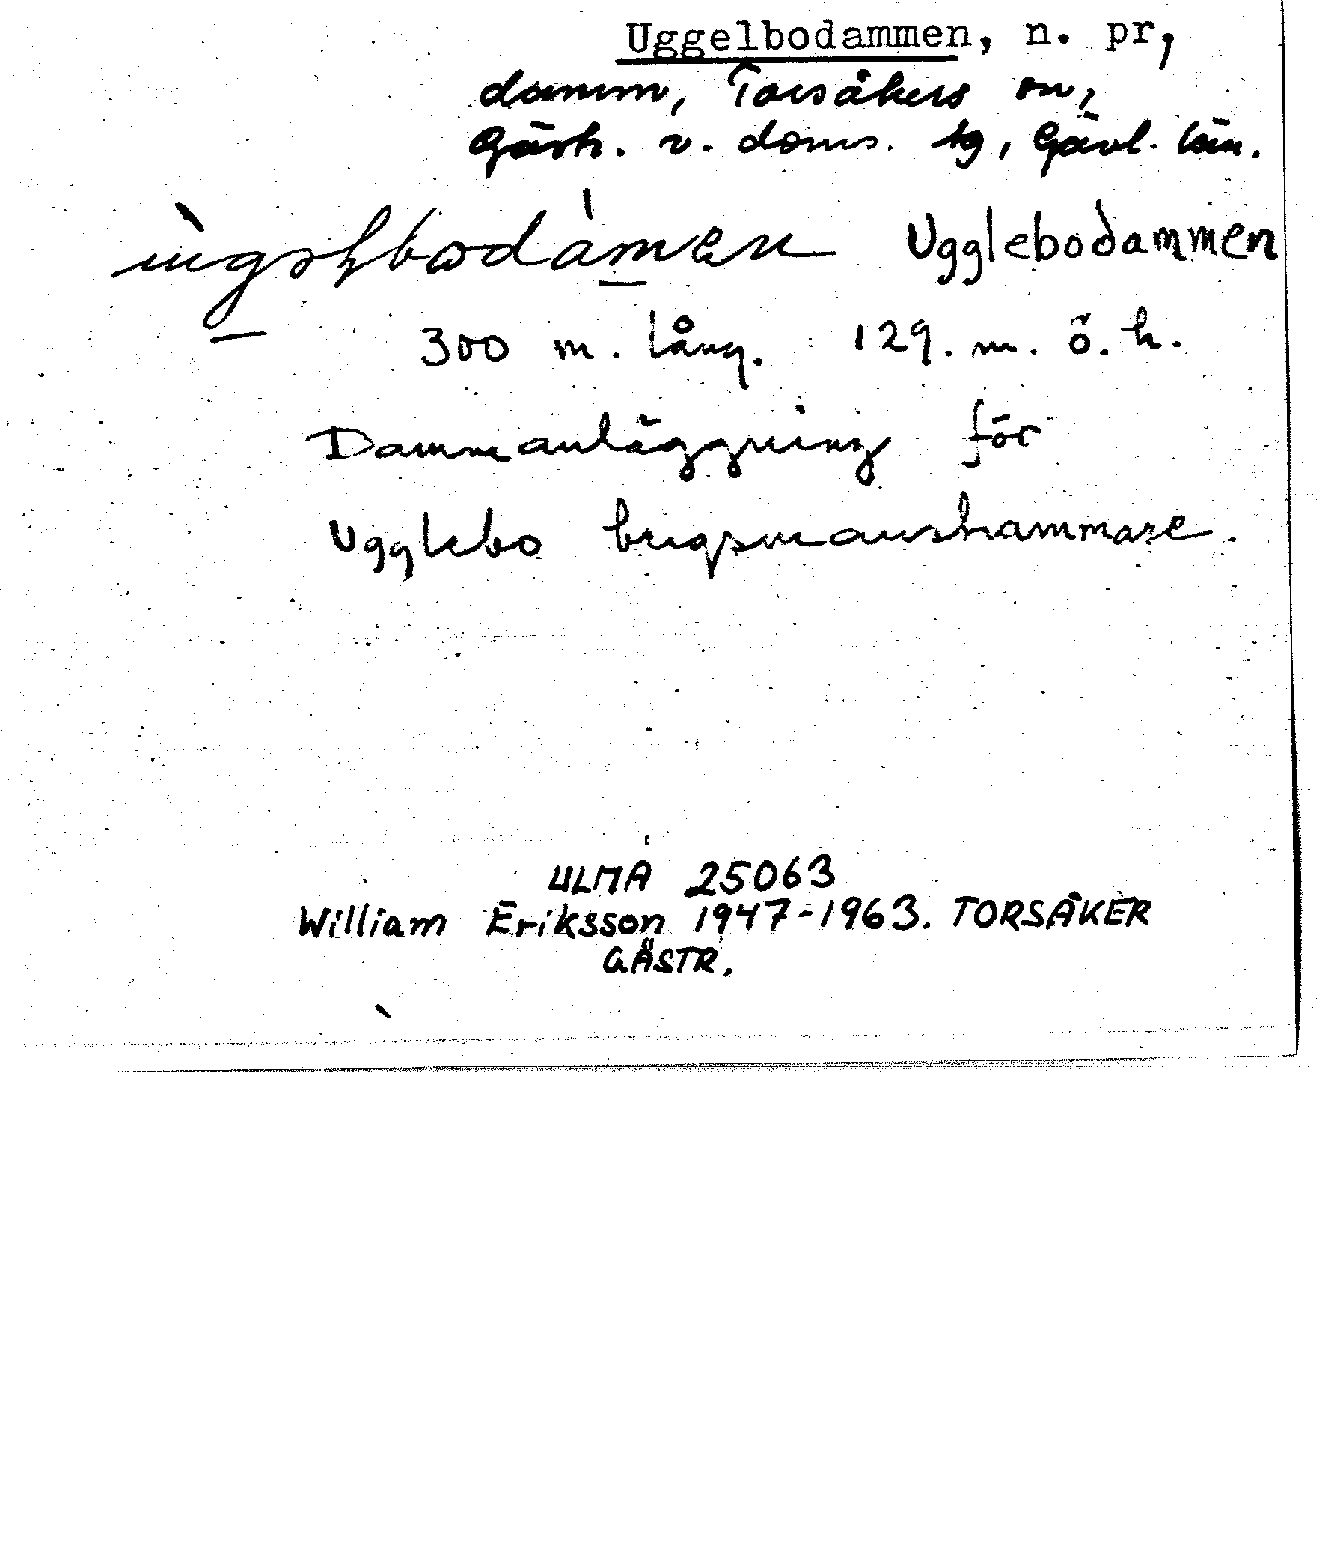 Uggelbodammen, n. pr,
damm, Torsåkers sn,
Gästr. v. doms. tg, Gävl. län.
Ugglebodammen
300 m. lång. 129. m. ö. h.
Dammanläggning för
Ugglebo brugsmanshammare.
ULMA 25063
William Eriksson 1947-1963. TORSÅKER
GÄSTR.